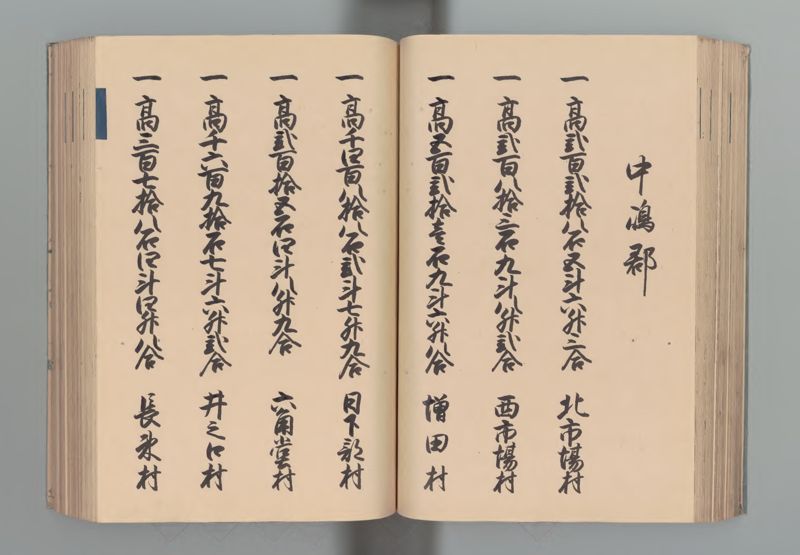 中嶋郡
一 高弐百弐拾八石五斗六升三合 北市場村
一 高弐百八拾三石九斗八升弐合 西市場村
一 高五百弐拾壱石九斗六升八合 増田村
一 高千四百八拾八石弐斗七升九合 日下部村
一 高弐百拾五石四斗八升九合 六角堂村
一 高千六百九拾石七斗六升弐合 井之口村
一 高三百七拾八石四斗四升八合 長束村